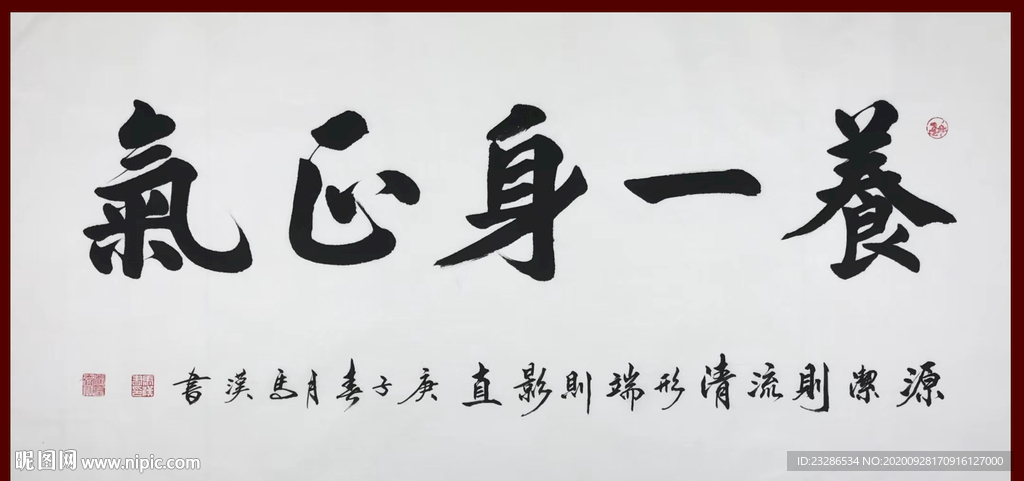 養一身正氣
源潔則流清形端則影直 庚子春月馬漢書
昵图网 www.nipic.com
ID:23286534 NO:20200928170916127000